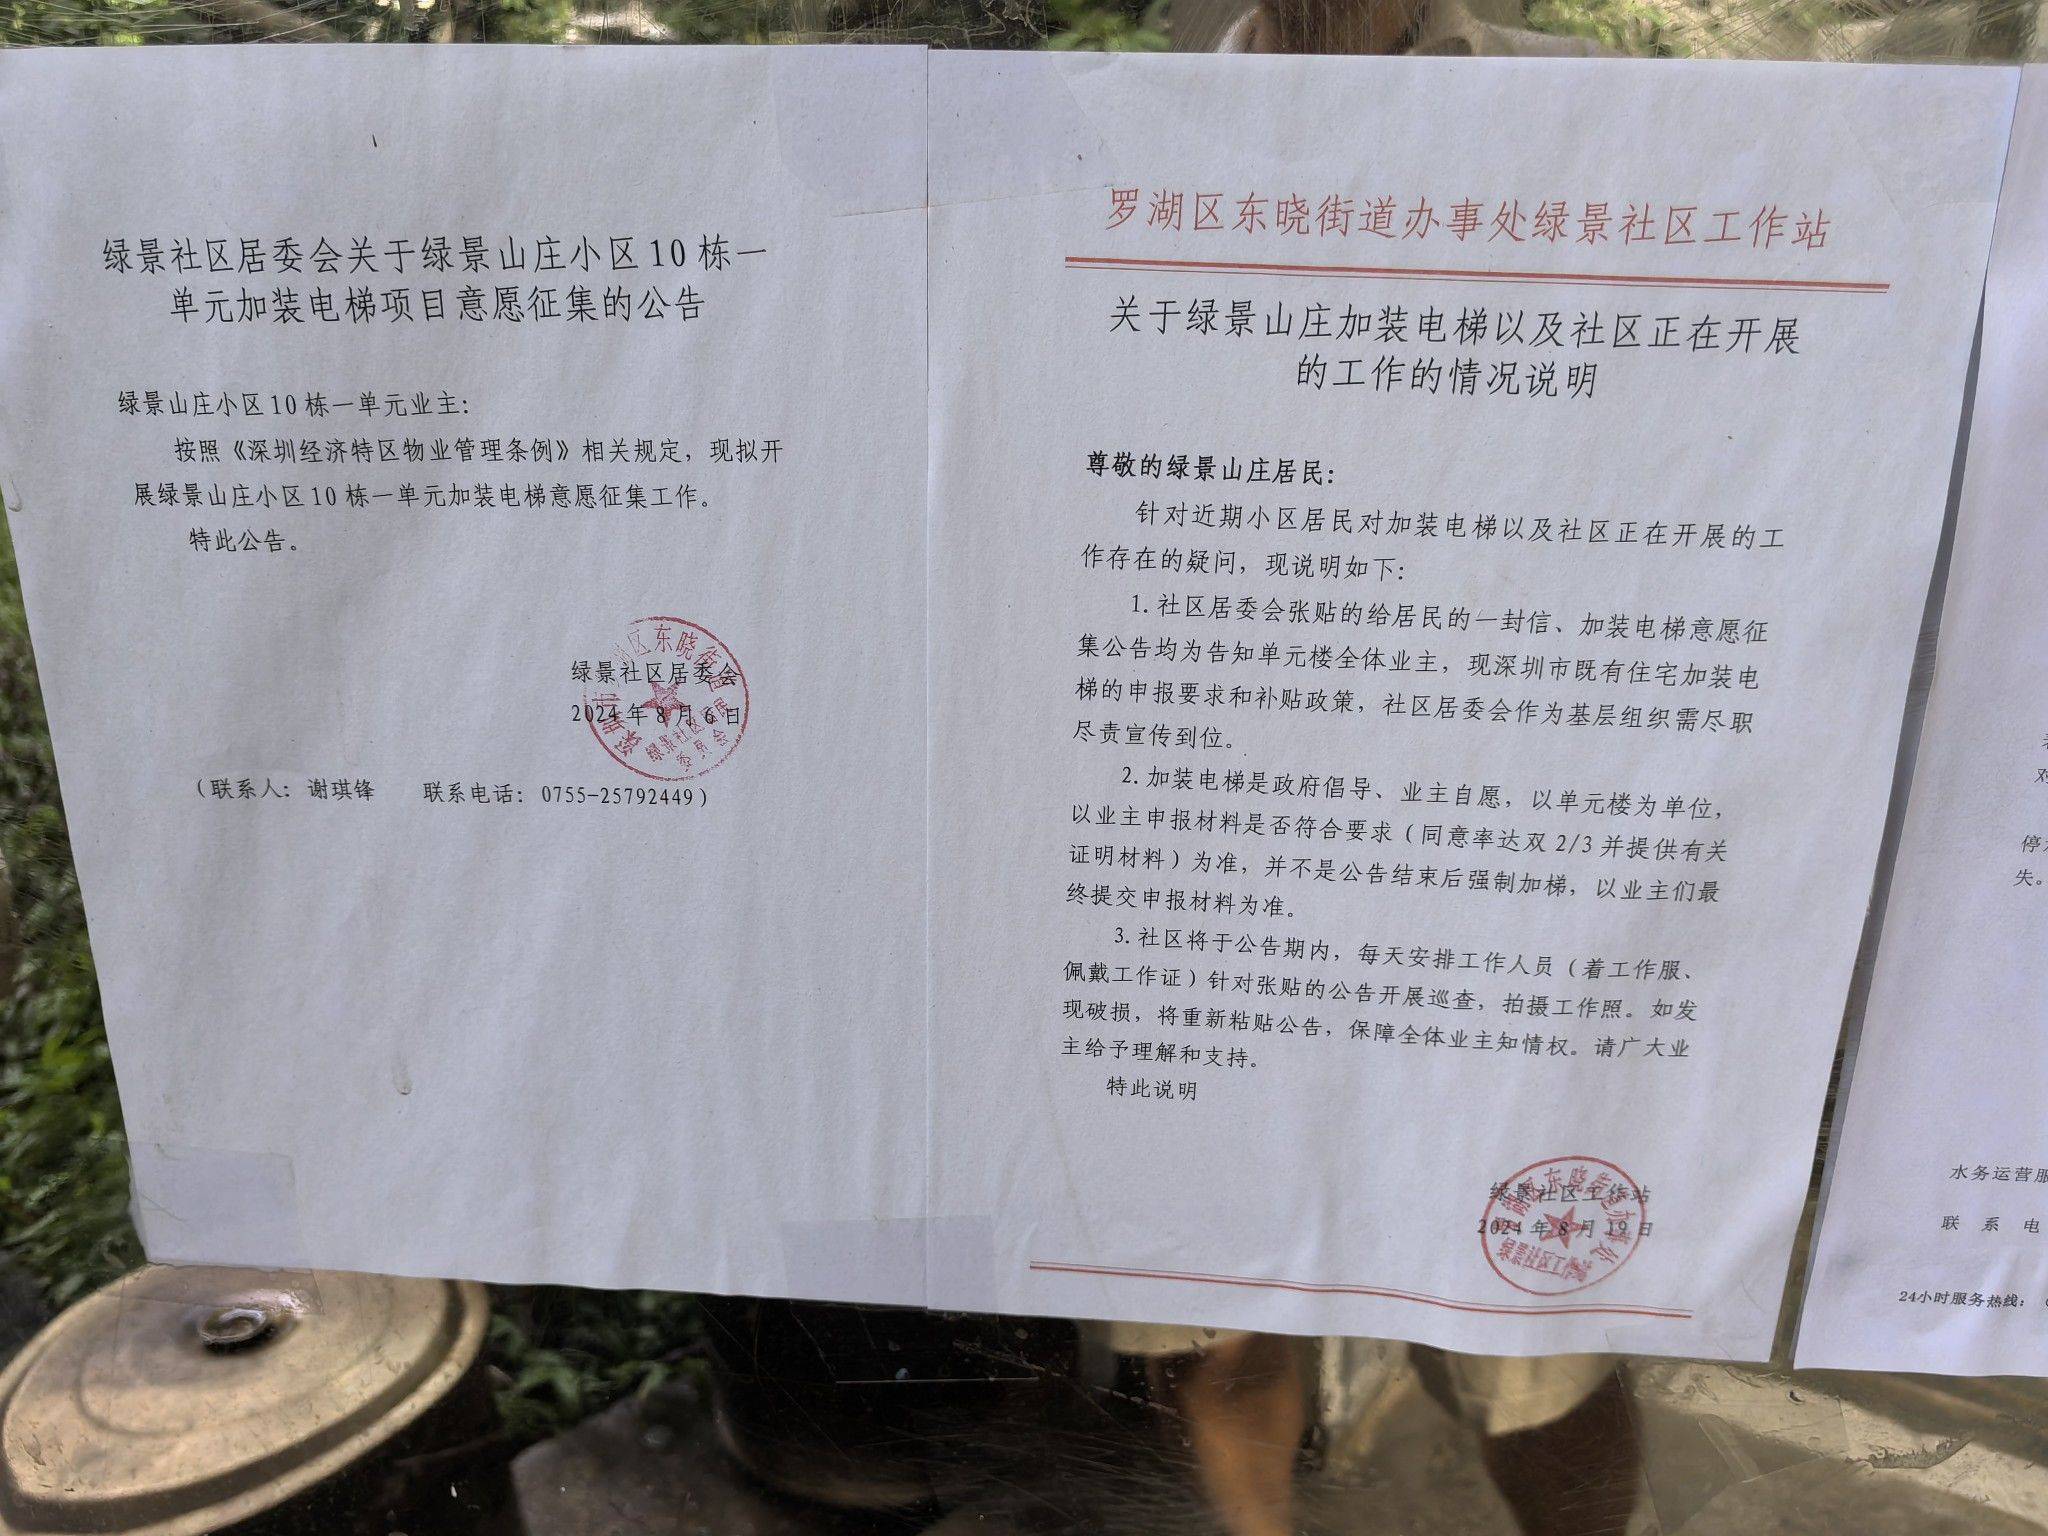 绿景社区居委会关于绿景山庄小区10栋一
单元加装电梯项目意愿征集的公告
绿景山庄小区10栋一单元业主：
按照《深圳经济特区物业管理条例》相关规定，现拟开
展绿景山庄小区10栋一单元加装电梯意愿征集工作。
特此公告。
绿景社区居委会
2024年8月6日
（联系人：谢琪锋 联系电话：0755-25792449）
罗湖区东晓街道办事处绿景社区工作站
关于绿景山庄加装电梯以及社区正在开展
的工作的情况说明
尊敬的绿景山庄居民：
针对近期小区居民对加装电梯以及社区正在开展的工
作存在的疑问，现说明如下：
1.社区居委会张贴的给居民的一封信、加装电梯意愿征
集公告均为告知单元楼全体业主，现深圳市既有住宅加装电
梯的申报要求和补贴政策，社区居委会作为基层组织需尽职
尽责宣传到位。
2.加装电梯是政府倡导、业主自愿，以单元楼为单位，
以业主申报材料是否符合要求（同意率达双2/3并提供有关
证明材料）为准，并不是公告结束后强制加梯，以业主们最
终提交申报材料为准。
3.社区将于公告期内，每天安排工作人员（着工作服、
佩戴工作证）针对张贴的公告开展巡查，拍摄工作照。如发
现破损，将重新粘贴公告，保障全体业主知情权。请广大业
主给予理解和支持。
特此说明
绿景社区工作站
2024年8月19日
对
停
失。
水务运营服
联系电
24小时服务热线：